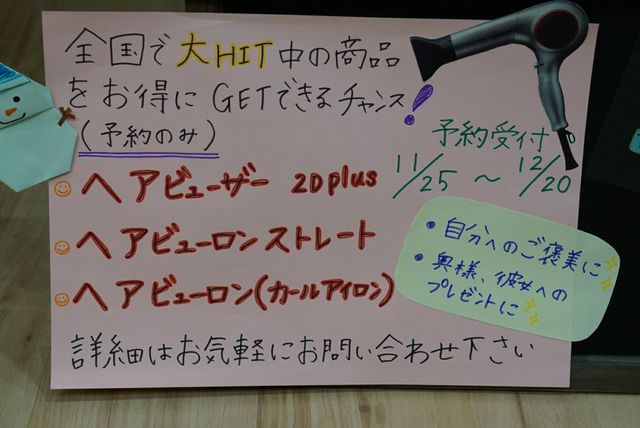 全国で大HIT中の商品
をお得にGETできるチャンス!
(予約のみ)
予約受付
11/25 〜 12/20
ヘアビューザー 2Dplus
ヘアビューロンストレート
ヘアビューロン(カールアイロン)
• 自分へのご褒美に
• 奥様、彼女への
プレゼントに
詳細はお気軽にお問い合わせ下さい